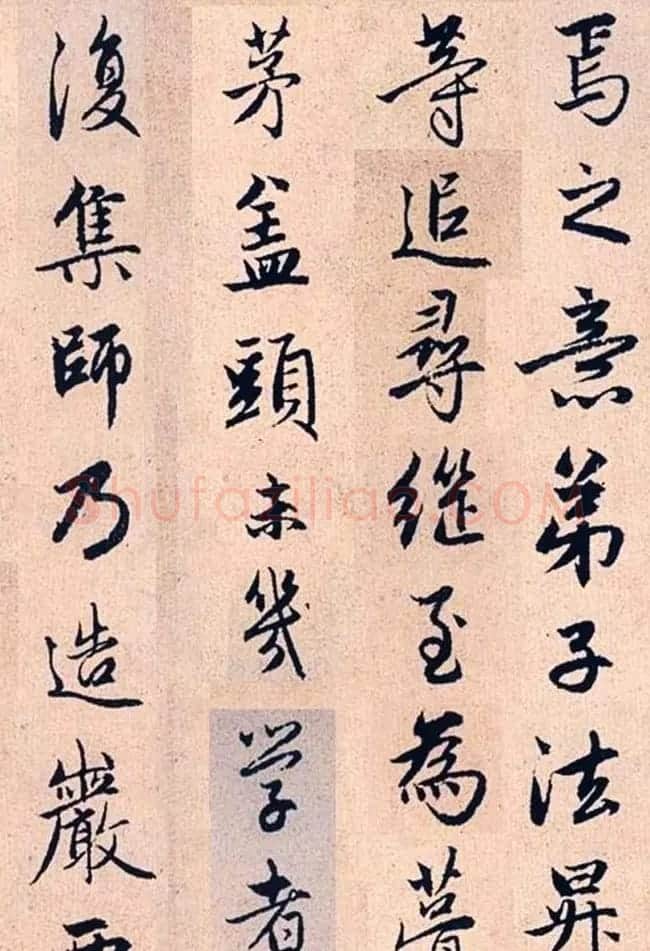 焉之意弟子法昇
等追尋継至為葺
茅盖頭未幾学者
復集師乃造巖西
Shufaziliao.COM